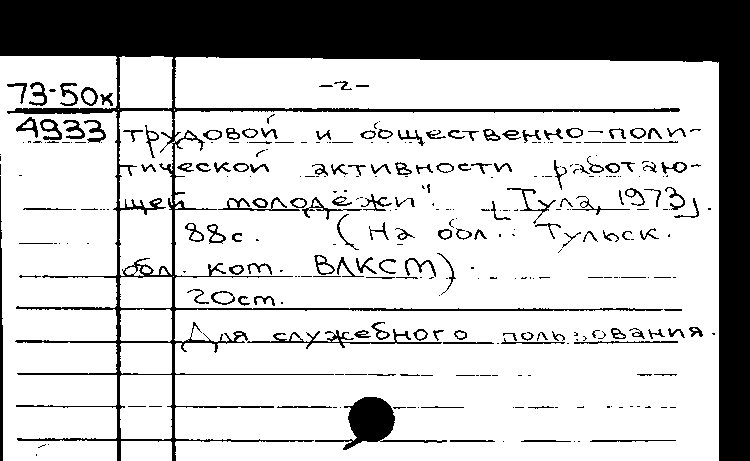 73-50к
-2-
4933 трудовой и общественно-поли-
тической активности работаю-
щей молодёжи". [Тула, 1973].
88с. (На обл.: Тульск.
обл. ком. ВЛКСМ).
20см.
Для служебного пользования.